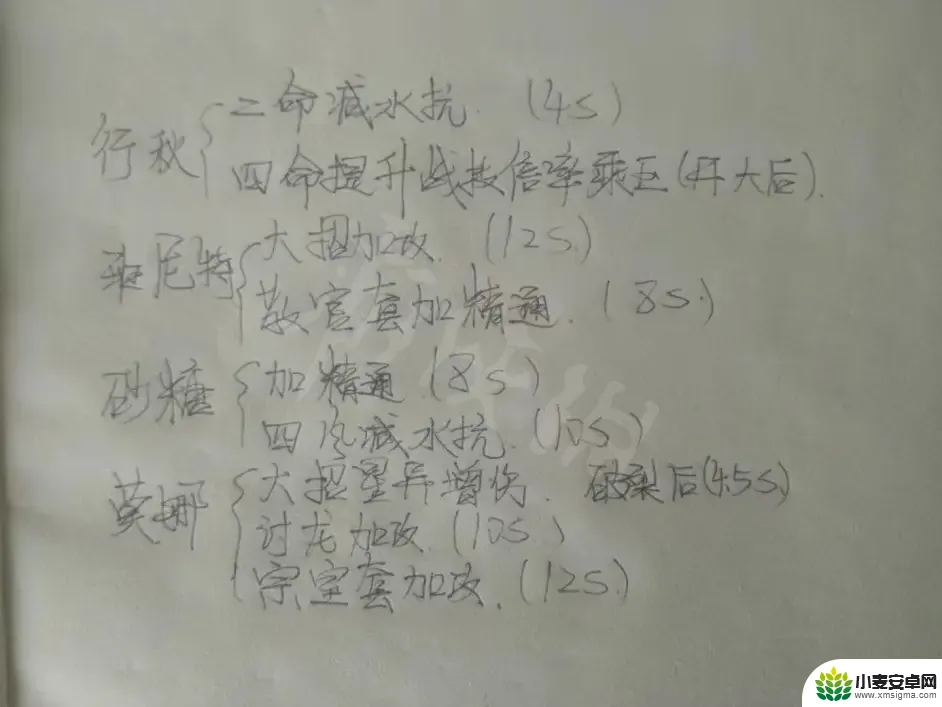 行秋
二命减水抗. (4s)
四命提升战技倍率乘区(开大后).
班尼特
大招加攻. (12s.)
教官套加精通. (8s.)
砂糖
加精通 (8s)
四风减水抗. (10s)
莫娜
大招星异增伤. 破裂后(4.5s.)
讨龙加攻. (10s.)
宗室套加攻. (12s.)
小麦安卓网
www.xmsigma.com